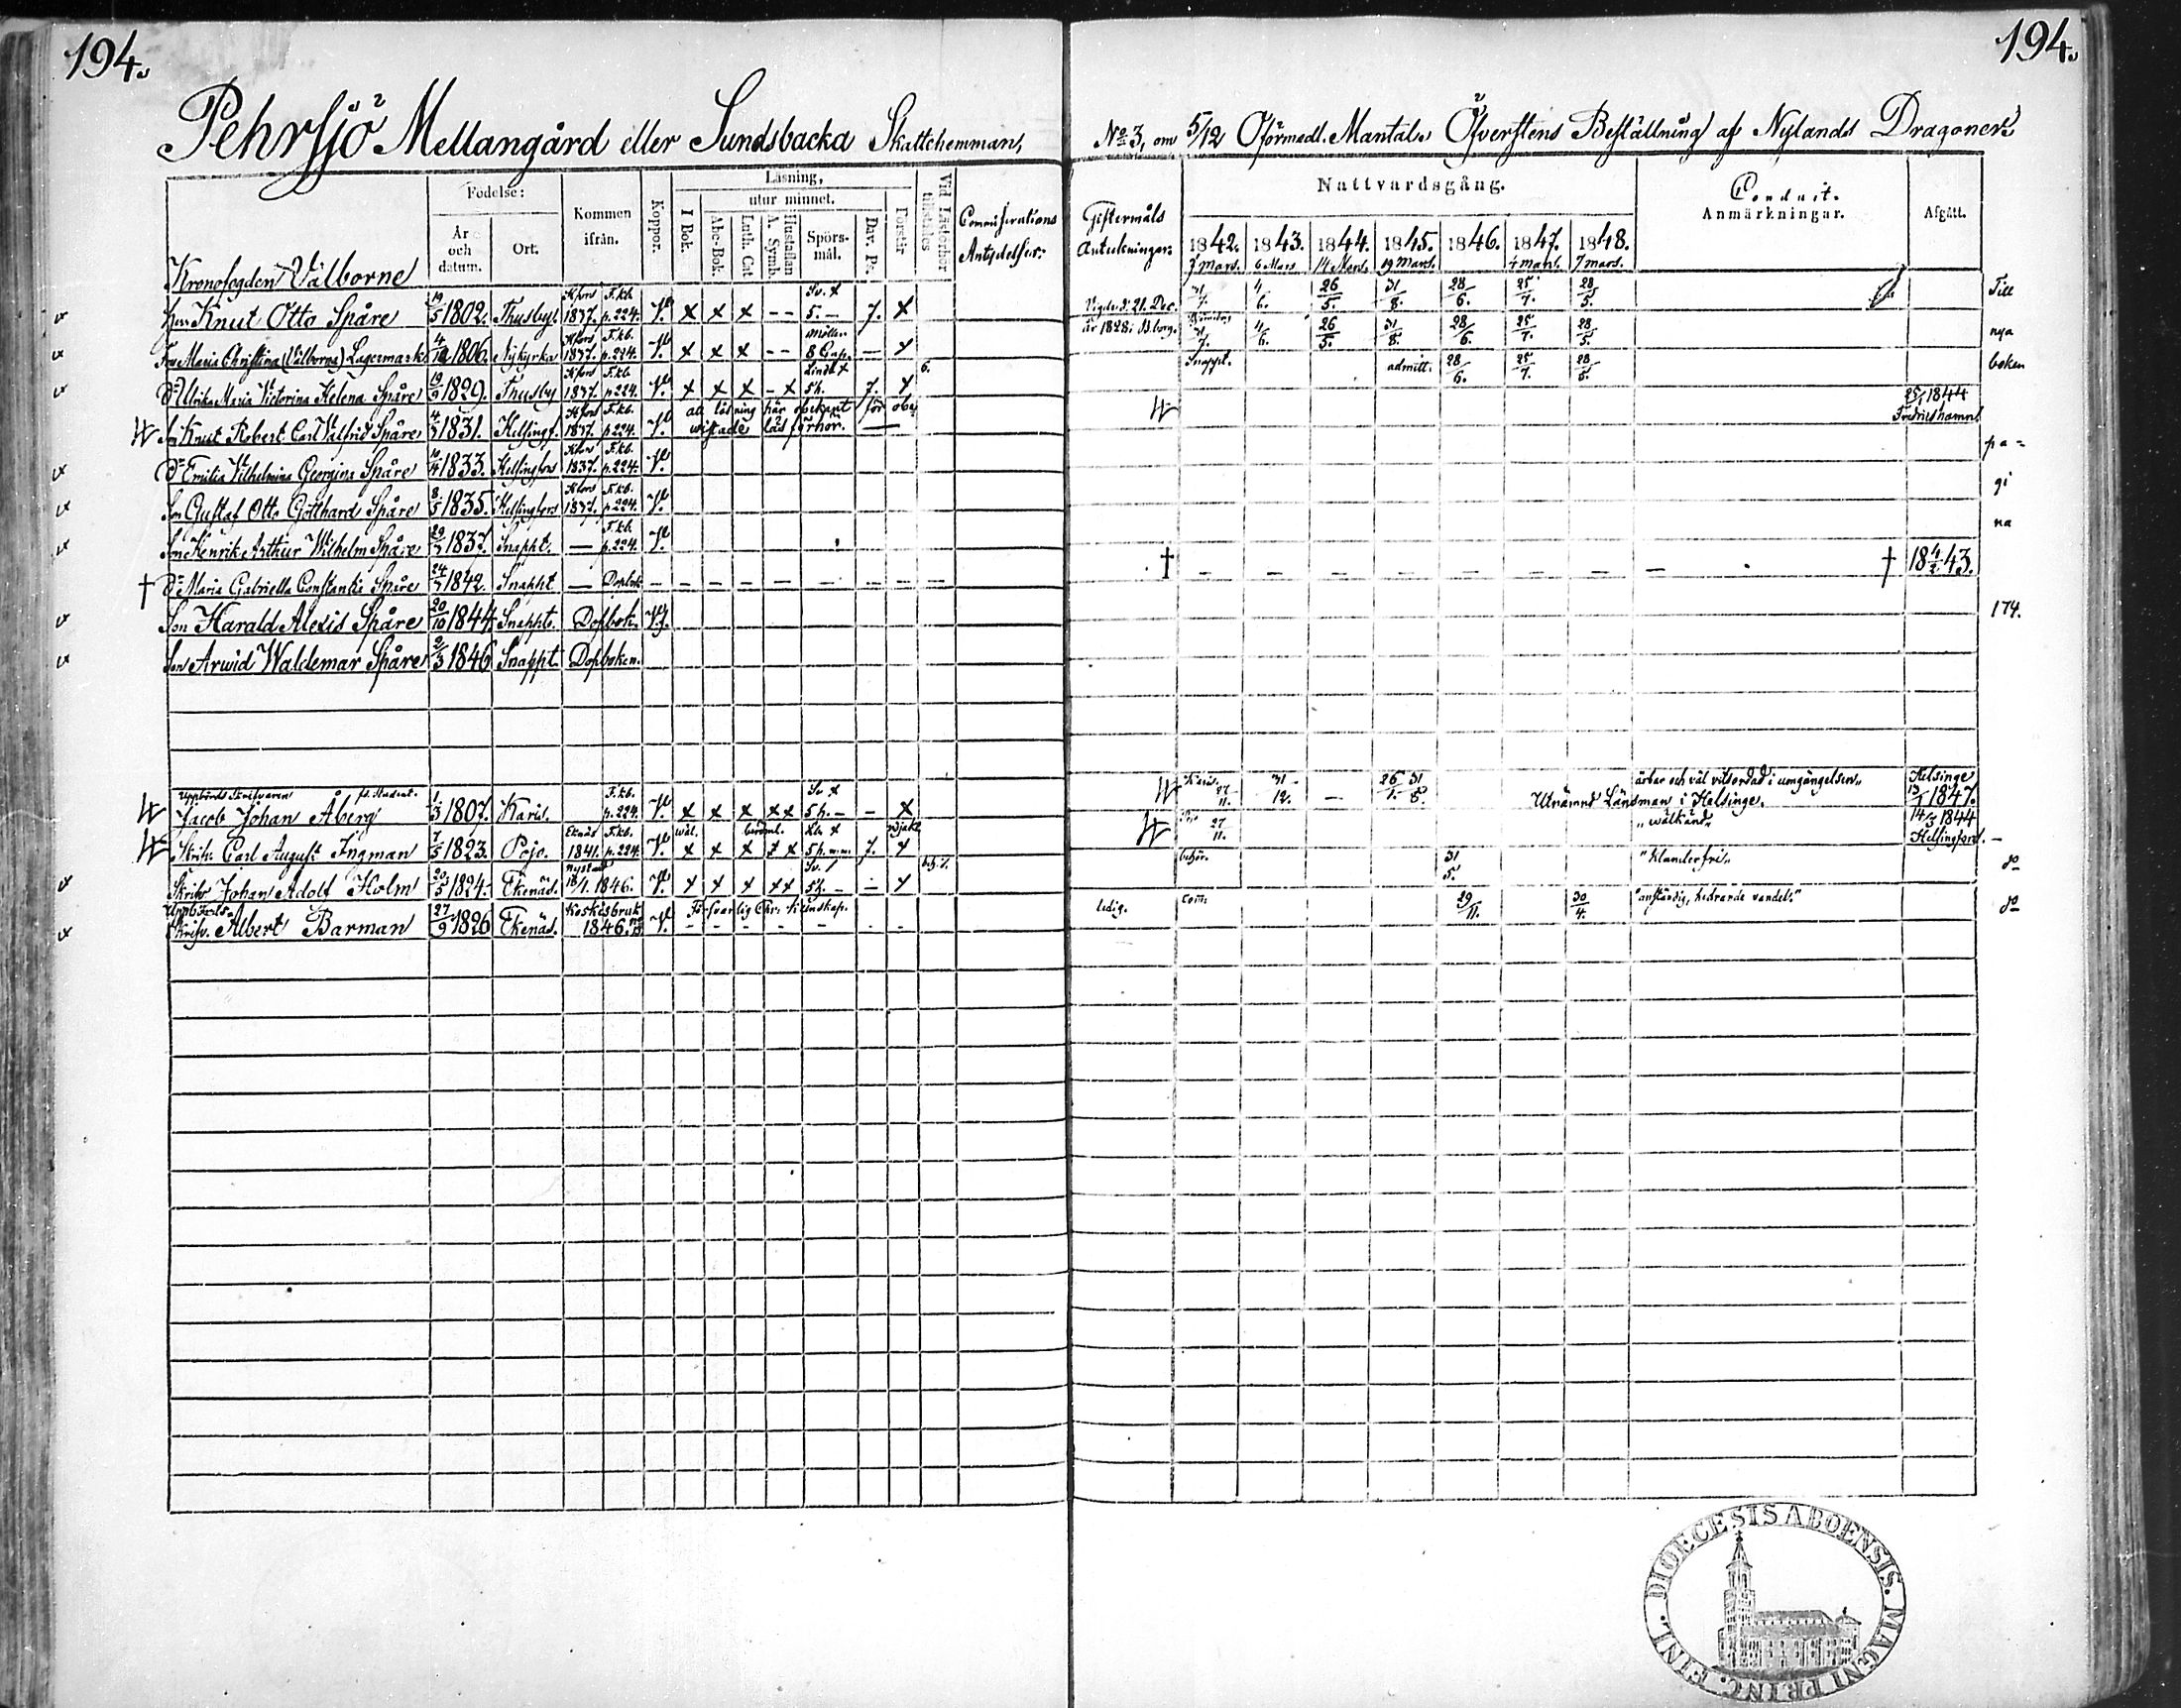 194.
194.
Pehrsjö Mellangård eller Sundsbacka Skattehemman,
No 3, om 5/12 Oförmedl. Mantal. Öfverstens Beställning af Nylands Dragoner
Födelse:
År och datum.
Ort.
Kommen ifrån.
Koppor.
Läsning,
utur minnet.
I Bok.
Abc-Bok.
Luth. Cat
A. Symb.
Hustaflan
Spörs-mål.
Dav. Ps.
Förstår
Vid Läsförhör tillstädes
Communications Antydelser:
Giftermåls Anteckningar:
Nattvardsgång.
1842. 1843. 1844. 1845. 1846. 1847. 1848.
7 Mars. 6 Mars 14 Mars. 19 Mars. 4 mars. 7 mars.
Conduit.
Anmärkningar.
Afgått.
Kronofogden Välborne
Herr Knut Otto Spåre 19/5 1802. Thusby H:fors 1837. F.kb. p. 224. V. x x x - - Sv. x 5. - 7. x Vigde d. 21. Dec. 31/7. 4/6. 26/5. 31/8. 28/6. 25/7. 28/5. Till
Fru Maria Christina (Välborne) Lagermark 4/12 1806. Nykyrka H:fors 1837. F.kb. p. 224. V. x x x - - 8 Cap. - x år 1828 i B.borg. 31/7. 4/6. 26/5. 31/8. 28/6. 25/7. 28/5. nya
Dr Ulrika Maria Victorina Helena Spåre 19/9 1829. Thusby H:fors 1837. F.kb. p. 224. V. x x x - x 5 h. 7. x 6. Snappt. admitt. 28/6. 25/7. 28/5. boken
Son Knut Robert Carl Valfrid Spåre 4/3 1831. Helsingf. H:fors 1837. F.kb. p. 224. V. all läsning här obekant för obe wistade läsförhör. 25/1 1844 Fredrikshamn
Dr Emilia Vilhelmina Georgina Spåre 10/4 1833. Helsingfors H:fors 1837. F.kb. p. 224. V. pa=
Son Gustaf Otto Gotthard Spåre 8/5 1835. Helsingfors H:fors 1837. F.kb. p. 224. V. gi
Son Henrik Arthur Wilhelm Spåre 29/7 1837. Snappt. — F.kb. p. 224. V. na
† Dr Maria Gabriella Constantia Spåre 24/7 1842. Snappt — Dopbok † † 18 4/2 43.
Son Harald Alexis Spåre 20/10 1844 Snappt. Dopbok. V. 174.
Son Arwid Waldemar Spåre 2/3 1846 Snappt. Dopboken.
Uppbörds Skrifvaren
Jacob Johan Åberg 1/3 1807. Karis. F.kb. p. 224. V. x x x x x Sv x 5 h. - - x Karis. 27/11. 31/12. - 26/1. 31/8. ärbar och väl vitsordad i umgängelsen. Utnämnd Länsman i Helsinge. Helsinge 13/1 1847.
Skrifv. Carl August Ingman 7/5 1823. Pojo. Eknäs 1841. F.kb. p. 224. V. wäl. x x x x x 5 h. m.m. 7. x 27/11. "wälkänd" 14/3 1844 Helsingfors. -
Skrifv Johan Adolf Holm 20/5 1824. Ekenäs. Nystad 1846. V. x x x x x Sv. 5 h. - - x behör. 31/5. "klanderfri" do
Uppbörds-
Skrifv. Albert Barman 27/9 1826 Ekenäs. Koskisbruk 1846. V. Försvarlig Chr. Kunskap. ledig. com. 29/11. 30/4. "anständig, hedrande vandel." do
DIOECESIS ABOENSIS. MAGNI PRINC. FINL.